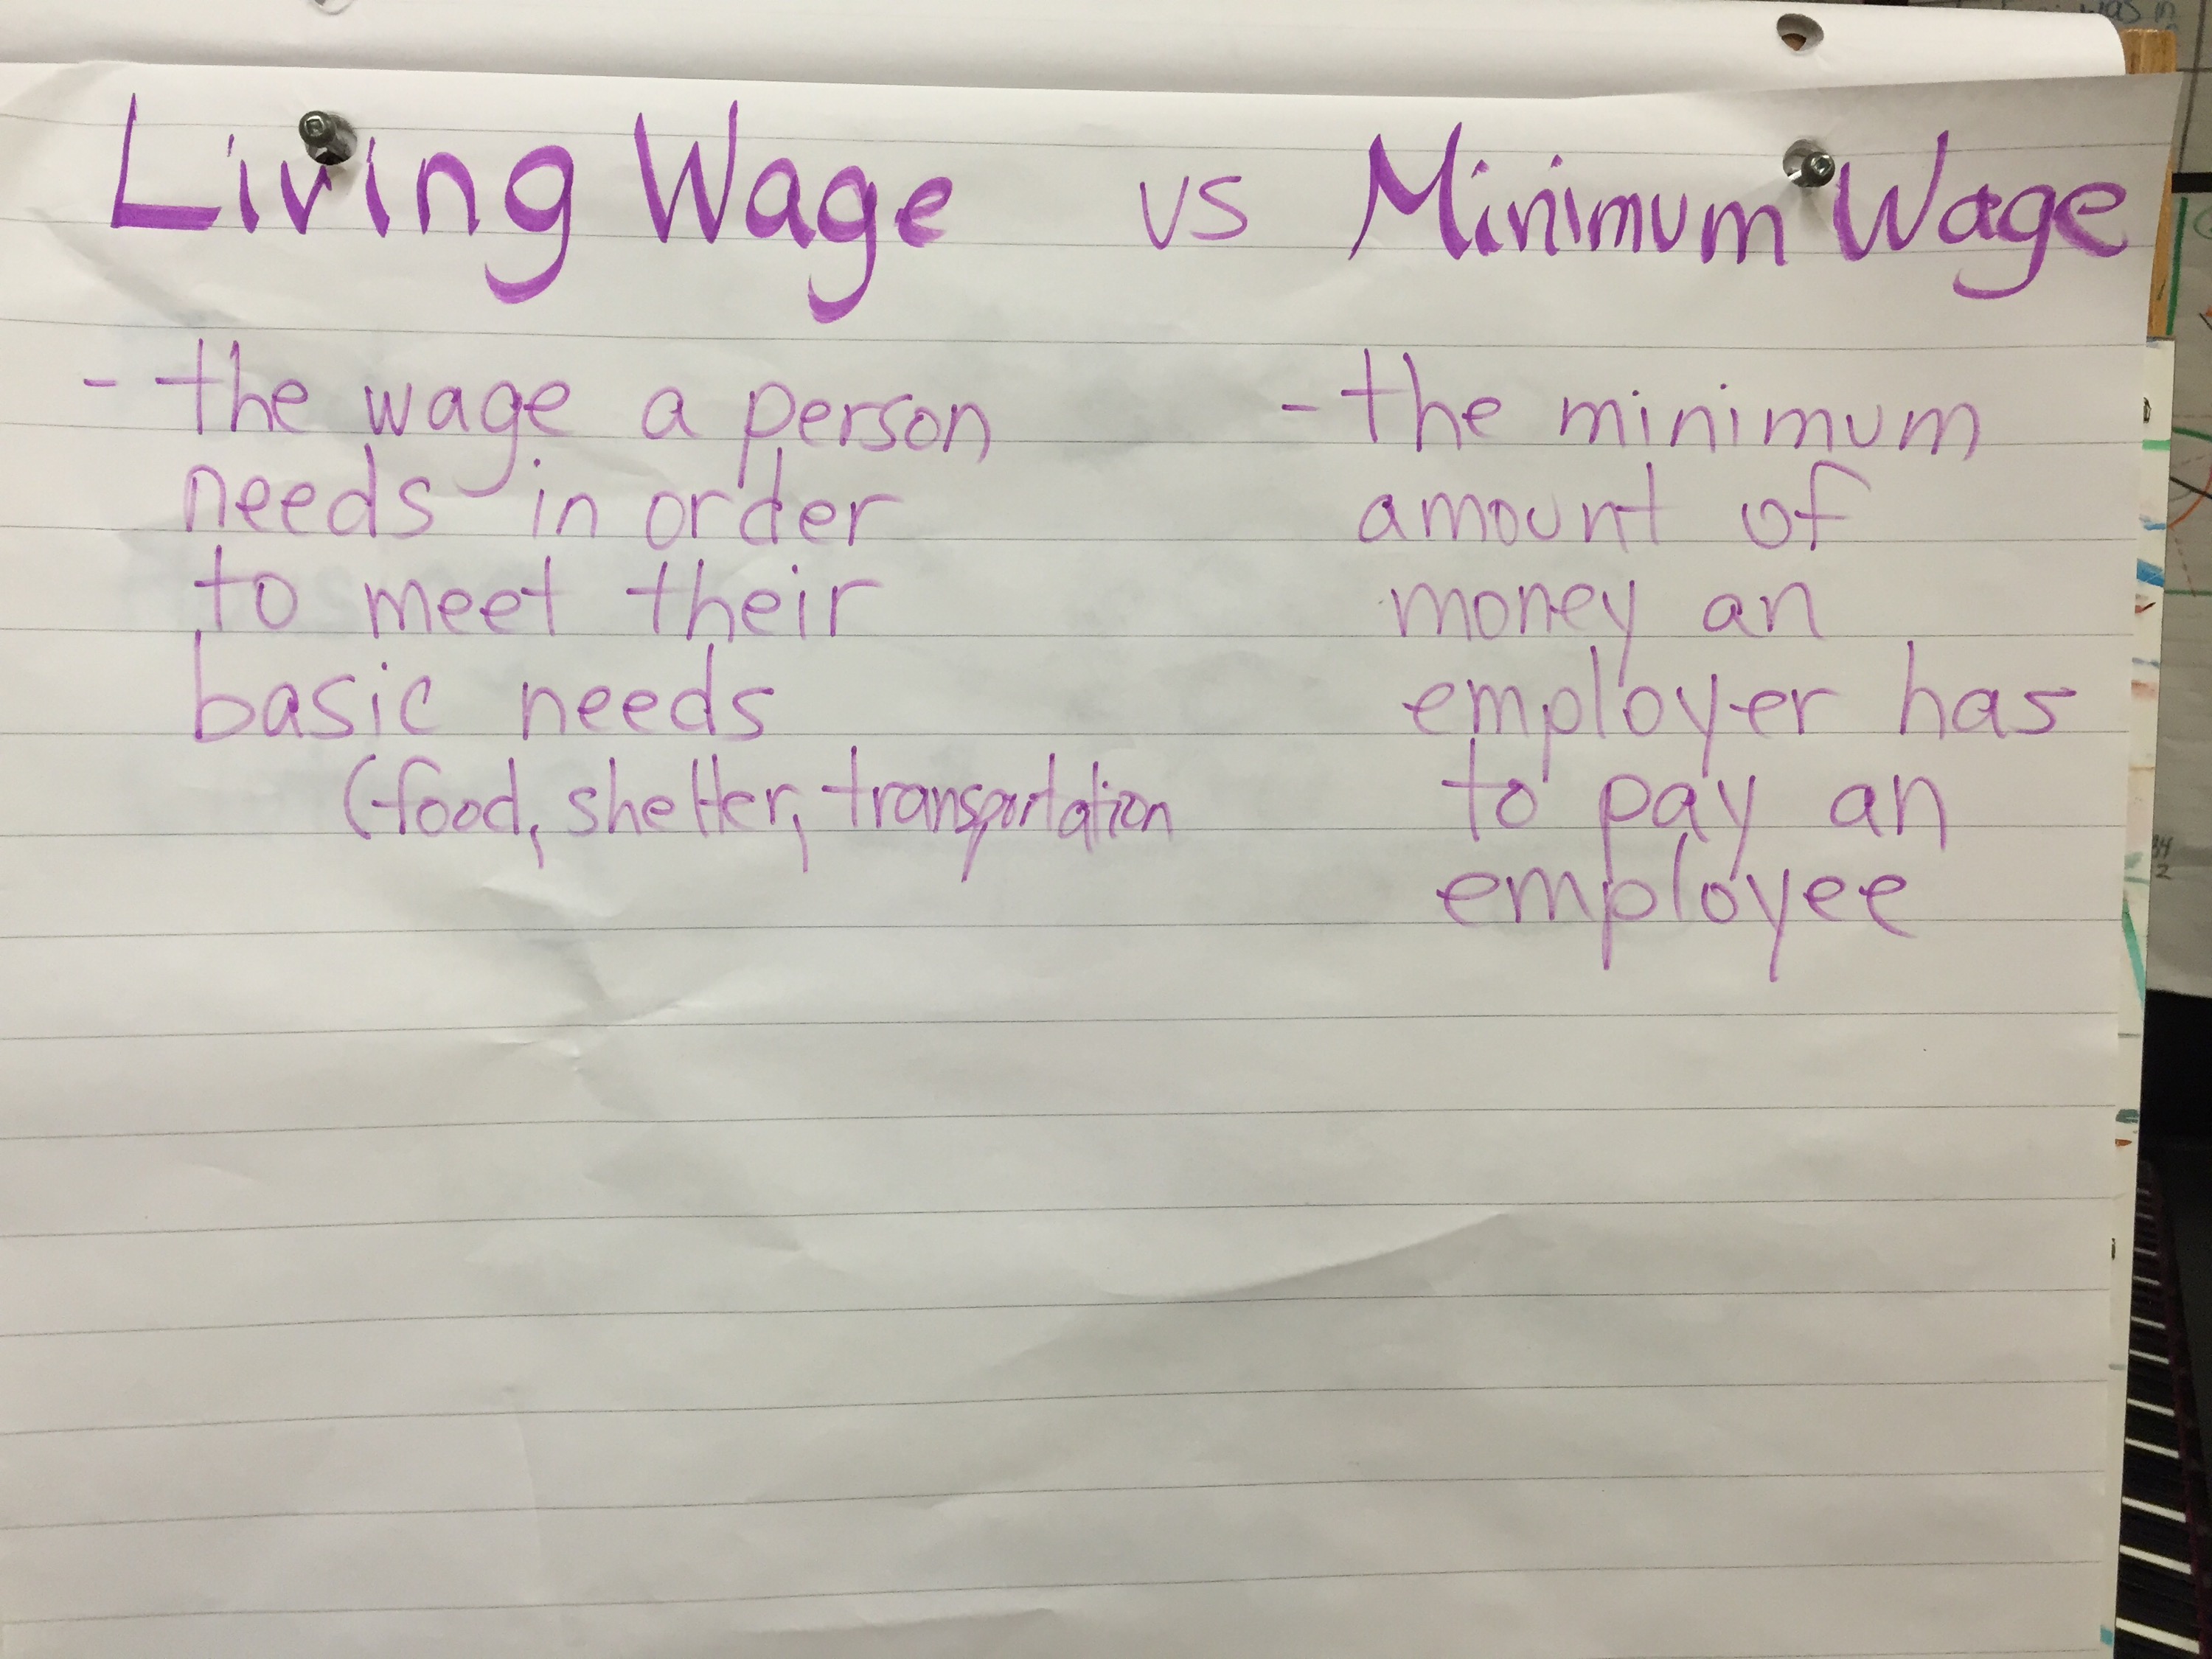 Living Wage vs Minimum Wage
- the wage a person
needs in order
to meet their
basic needs
(food, shelter, transportation
- the minimum
amount of
money an
employer has
to pay an
employee
was in
34
2